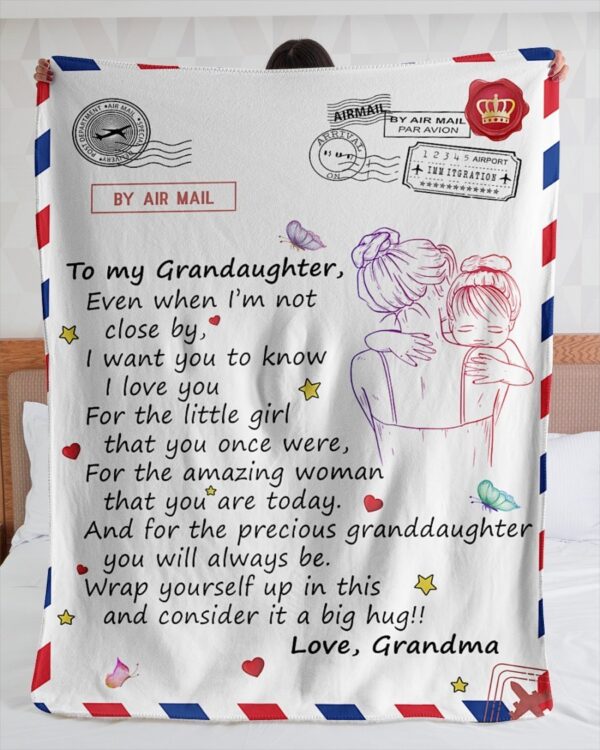 POST DEPARTMENT • AIR MAIL • SPECIAL DELIVERY
AIRMAIL
BY AIR MAIL
PAR AVION
ARRIVAL
ON
1 2 3 4 5 AIRPORT
IMMITGRATION
BY AIR MAIL
To my Grandaughter,
Even when I'm not
close by,
I want you to know
I love you
For the little girl
that you once were,
For the amazing woman
that you are today.
And for the precious granddaughter
you will always be.
Wrap yourself up in this
and consider it a big hug!!
Love, Grandma